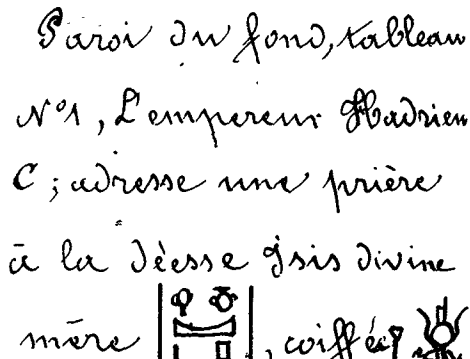 Paroi du fond, tableau
N° 1, L'empereur Hadrien
C ; adresse une prière
à la Déesse Isis divine
mère , coiffée